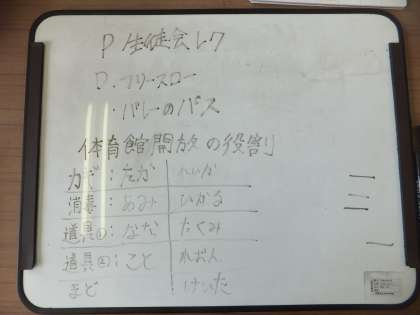 P 生徒会レク
D.フリースロー
・バレーのパス
体育館開放の役割
カギ:たが れいか
消毒:あみ ひかる
道具①:なな たくみ
道具②:こと れおん
まど けいた